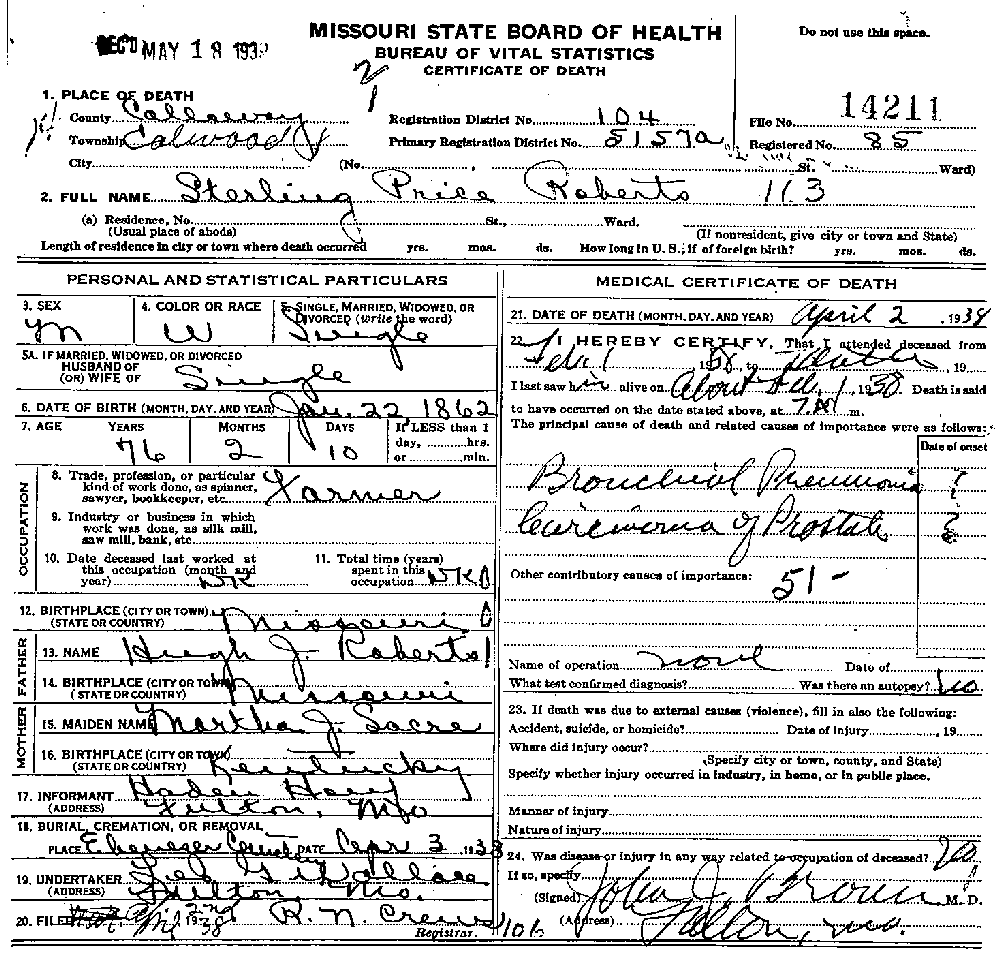 REC'D MAY 18 1938
MISSOURI STATE BOARD OF HEALTH
BUREAU OF VITAL STATISTICS
CERTIFICATE OF DEATH
Do not use this space.
1. PLACE OF DEATH
County Callaway
Township Calwood
City (No. St. Ward)
Registration District No. 104
Primary Registration District No. 5157a
File No. 14211
Registered No. 85
2. FULL NAME Sterling Price Roberts 113
(a) Residence, No. St., Ward.
(Usual place of abode) (If nonresident, give city or town and State)
Length of residence in city or town where death occurred yrs. mos. ds. How long in U.S., if of foreign birth? yrs. mos. ds.
PERSONAL AND STATISTICAL PARTICULARS
3. SEX M
4. COLOR OR RACE W
5. SINGLE, MARRIED, WIDOWED, OR DIVORCED (write the word) Single
5A. IF MARRIED, WIDOWED, OR DIVORCED
HUSBAND OF
(OR) WIFE OF Single
6. DATE OF BIRTH (MONTH, DAY, AND YEAR) Jan. 22 1862
7. AGE YEARS MONTHS DAYS If LESS than 1
day, hrs.
or min.
76 2 10
OCCUPATION
8. Trade, profession, or particular
kind of work done, as spinner,
sawyer, bookkeeper, etc. Farmer
9. Industry or business in which
work was done, as silk mill,
saw mill, bank, etc.
10. Date deceased last worked at
this occupation (month and
year) DK
11. Total time (years)
spent in this
occupation DK
12. BIRTHPLACE (CITY OR TOWN)
(STATE OR COUNTRY) Missouri
FATHER
13. NAME Hugh J. Roberts
14. BIRTHPLACE (CITY OR TOWN)
(STATE OR COUNTRY) Missouri
MOTHER
15. MAIDEN NAME Martha J. Sacre
16. BIRTHPLACE (CITY OR TOWN)
(STATE OR COUNTRY) Kentucky
17. INFORMANT Haden
(ADDRESS) Fulton, Mo
18. BURIAL, CREMATION, OR REMOVAL
PLACE Ebenezer Cemetery DATE Apr 3 1938
19. UNDERTAKER Wallace
(ADDRESS) Fulton Mo.
20. FILED 1938 R. N. Crews
Registrar. 106
MEDICAL CERTIFICATE OF DEATH
21. DATE OF DEATH (MONTH, DAY, AND YEAR) April 2, 1938
22. I HEREBY CERTIFY, That I attended deceased from
Feb 1 1938 to Death, 19
I last saw him alive on About 1, 1938. Death is said
to have occurred on the date stated above, at 7 m.
The principal cause of death and related causes of importance were as follows:
Date of onset
Bronchial Pneumonia ?
Carcinoma of Prostate ?
Other contributory causes of importance:
51-
Name of operation none Date of
What test confirmed diagnosis? Was there an autopsy? No
23. If death was due to external causes (violence), fill in also the following:
Accident, suicide, or homicide? Date of injury , 19
Where did injury occur?
(Specify city or town, county, and State)
Specify whether injury occurred in industry, in home, or in public place.
Manner of injury
Nature of injury
24. Was disease or injury in any way related to occupation of deceased? No
If so, specify
(Signed) John J. Brown M. D.
(Address) Fulton, Mo.